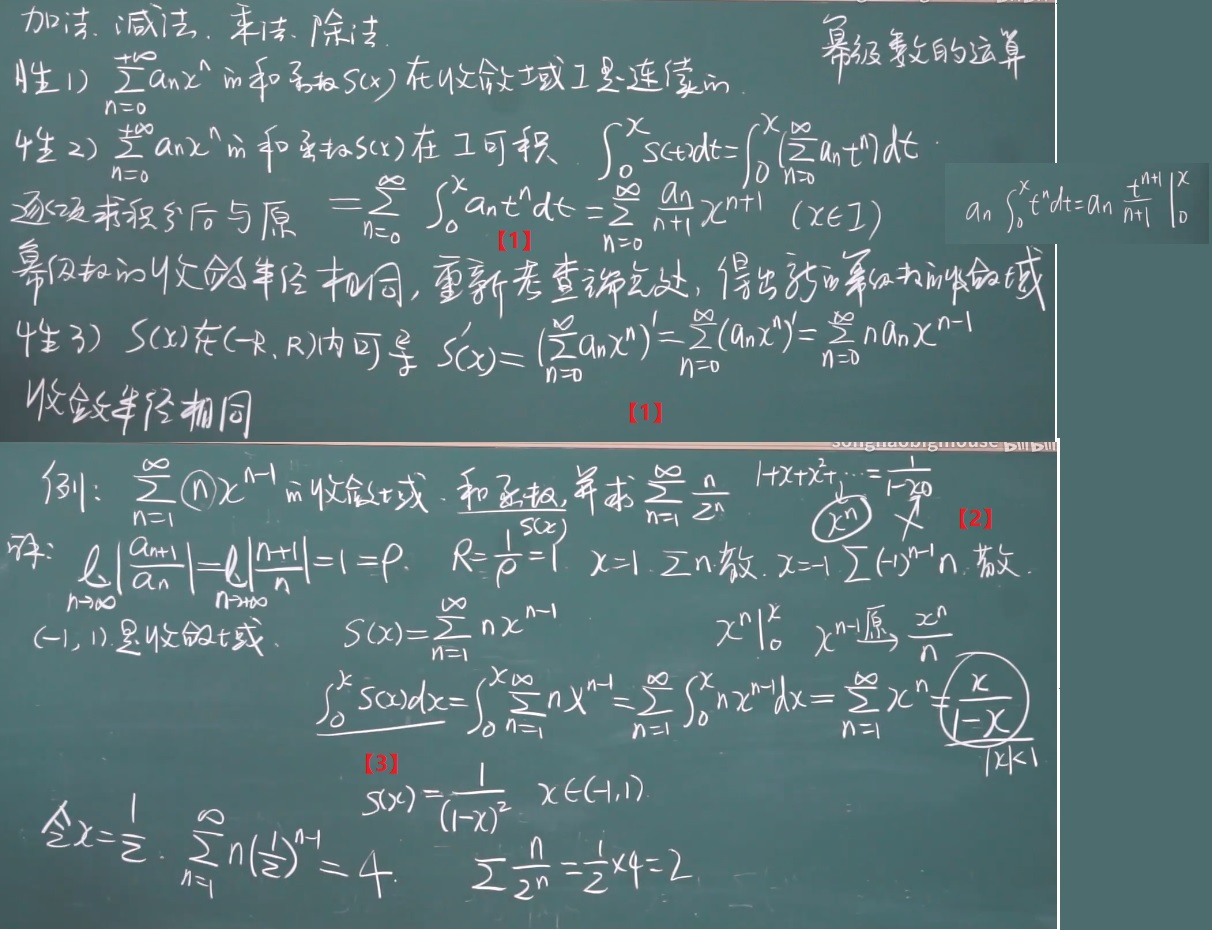 加法、减法、乘法、除法.
幂级数的运算
性1) \sum_{n=0}^{+\infty} a_n x^n 的和函数S(x)在收敛域I是连续的.
性2) \sum_{n=0}^{+\infty} a_n x^n 的和函数S(x)在I可积. \int_0^x S(t)dt = \int_0^x (\sum_{n=0}^{\infty} a_n t^n)dt.
逐项求积分后与原 = \sum_{n=0}^{\infty} \int_0^x a_n t^n dt = \sum_{n=0}^{\infty} \frac{a_n}{n+1} x^{n+1} (x∈I)
a_n \int_0^x t^n dt = a_n \frac{t^{n+1}}{n+1} |_0^x
【1】
幂级数的收敛半径相同,重新考查端点处,得出新的幂级数的收敛域
性3) S(x)在(-R、R)内可导 S'(x) = (\sum_{n=0}^{\infty} a_n x^n)' = \sum_{n=0}^{\infty} (a_n x^n)' = \sum_{n=0}^{\infty} n a_n x^{n-1}
收敛半径相同
【1】
例: \sum_{n=1}^{\infty} n x^{n-1} 的收敛域.和函数,并求 \sum_{n=1}^{\infty} \frac{n}{2^n}
S(x)
1+x+x^2+…=
x^n
【2】
解: \lim_{n→∞} |\frac{a_{n+1}}{a_n}| = \lim_{n→+∞} |\frac{n+1}{n}| = 1 = ρ. R = \frac{1}{ρ} = 1 x=1. Σn.散. x=-1 Σ(-1)^{n-1} n. 散.
(-1,1)是收敛域. S(x) = \sum_{n=1}^{\infty} n x^{n-1} x^n |_0^x x^{n-1} 原→ \frac{x^n}{n}
\int_0^x S(x)dx = \int_0^x \sum_{n=1}^{\infty} n x^{n-1} = \sum_{n=1}^{\infty} \int_0^x n x^{n-1} dx = \sum_{n=1}^{\infty} x^n = \frac{x}{1-x}
|x|<1
【3】
S(x) = \frac{1}{(1-x)^2} x∈(-1,1).
令x=\frac{1}{2}. \sum_{n=1}^{\infty} n(\frac{1}{2})^{n-1} = 4. Σ \frac{n}{2^n} = \frac{1}{2}×4=2